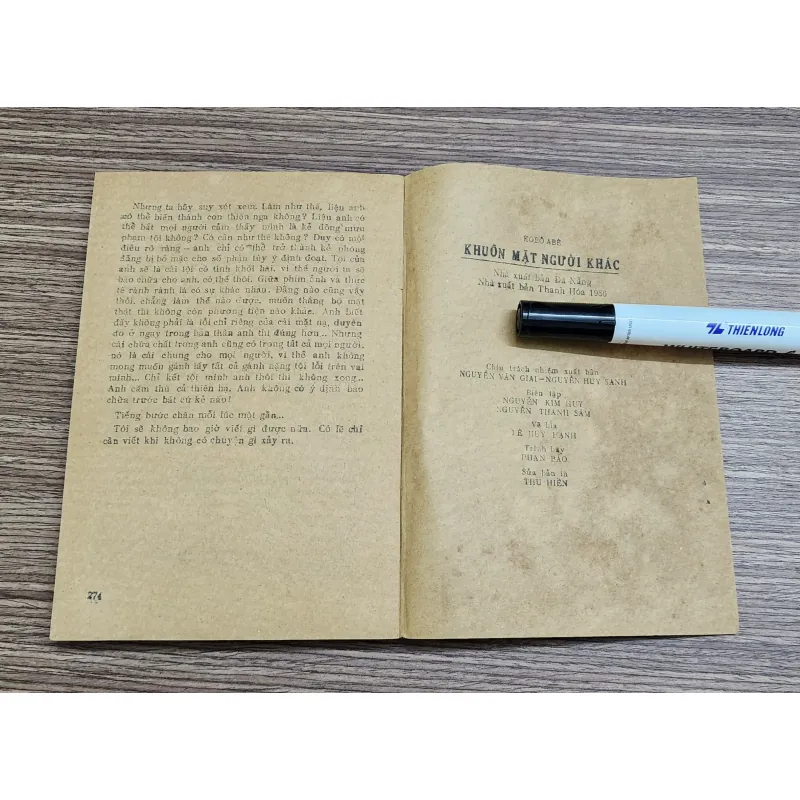 Nhưng ta hãy suy xét xem. Làm như thế, liệu anh
có thể biến thành con thiên nga không? Liệu anh có
thể bắt mọi người cảm thấy mình là kẻ đồng mưu
phạm tội không? Có cần như thế không? Duy có một
điều rõ ràng — anh chỉ có thể trở thành kẻ phóng
đãng bị bỏ mặc cho số phận tùy ý định đoạt. Tội của
anh sẽ là cái lội có tính khôi hài, vì thế người ta sẽ
bào chữa cho anh, có thể thôi. Giữa phim ảnh và thực
tế rành rành là có sự khác nhau. Đằng nào cũng vậy
thôi, chẳng làm thế nào được, muốn thắng bộ mặt
thật thì không còn phương tiện nào khác. Anh biết
đấy không phải là lỗi chỉ riêng của cái mặt nạ, duyên
do ở ngay trong bản thân anh thì đúng hơn... Nhưng
cái chứa chất trong anh cũng có trong tất cả mọi người,
nó là cái chung cho mọi người, vì thế anh không
mong muốn gánh lấy tất cả gánh nặng tội lỗi trên vai
mình... Chỉ kết tội mình anh thôi thì không xong...
Anh căm thù cả thiên hạ. Anh không có ý định bào
chữa trước bất cứ kẻ nào!
Tiếng bước chân mỗi lúc một gần...
Tôi sẽ không bao giờ viết gì được nữa. Có lẽ chỉ
cần viết khi không có chuyện gì xảy ra.
274
KOBÔ ABÊ
KHUÔN MẶT NGƯỜI KHÁC
Nhà xuất bản Đà Nẵng
Nhà xuất bản Thanh Hóa 1986
Chịu trách nhiệm xuất bản
NGUYỄN VĂN GIAI—NGUYỄN HUY SANH
Biên tập
NGUYỄN KIM HUY
NGUYỄN THANH SÂM
Vẽ bìa
LÊ HUY HẠNH
Trình bày
PHAN BẢO
Sửa bản in
THU HIỀN
TL THIENLONG
WHITEBOARD